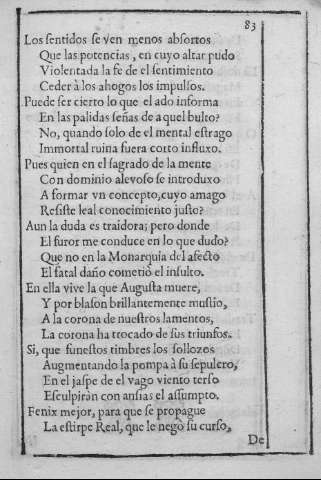 83
Los ſentidos ſe ven menos abſortos
Que las potencias, en cuyo altar pudo
Violentada la fe de el ſentimiento
Ceder à los ahogos los impulſos.
Puede ſer cierto lo que el ado informa
En las palidas ſeñas de aquel bulto?
No, quando ſolo de el mental eſtrago
Immortal ruina fuera corto influxo.
Pues quien en el ſagrado de la mente
Con dominio alevoſo ſe introduxo
A formar vn concepto, cuyo amago
Reſiſte leal conocimiento juſto?
Aun la duda es traidora; pero donde
El furor me conduce en lo que dudo?
Que no en la Monarquia del afecto
El fatal daño cometiò el inſulto.
En ella vive la que Auguſta muere,
Y por blaſon brillantemente muſtio,
A la corona de nueſtros lamentos,
La corona ha trocado de ſus triunfos.
Si, que funeſtos timbres los ſollozos
Augmentando la pompa à ſu ſepulcro,
En el jaſpe de el vago viento terſo
Eſculpiràn con anſias el aſſumpto.
Fenix mejor, para que ſe propague
La eſtirpe Real, que le negò ſu curſo,
De